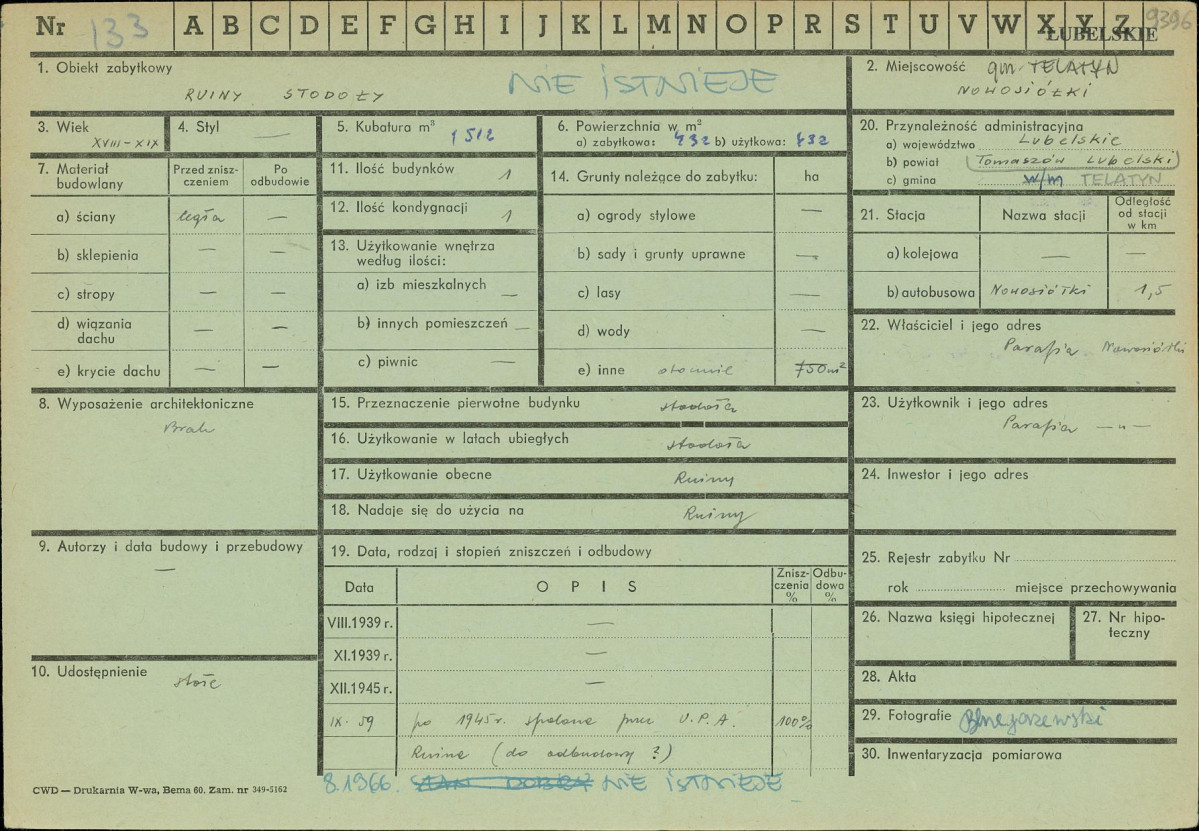 Nr 133 A B C D E F G H I J K L M N O P R S T U V W X Y Z 9396
LUBELSKIE
1. Obiekt zabytkowy
NIE ISTNIEJE
RUINY STODOŁY
2. Miejscowość gm. TELATYN
NOWOSIÓŁKI
3. Wiek
XVIII-XIX
4. Styl —
5. Kubatura m³
1512
6. Powierzchnia w m²
a) zabytkowa: 432 b) użytkowa: 432
20. Przynależność administracyjna
a) województwo Lubelskie
b) powiat (Tomaszów Lubelski)
c) gmina w/m TELATYN
7. Materiał budowlany
Przed znisz-
czeniem
Po
odbudowie
a) ściany cegła —
b) sklepienia — —
c) stropy — —
d) wiązania
dachu — —
e) krycie dachu — —
11. Ilość budynków 1
12. Ilość kondygnacji 1
13. Użytkowanie wnętrza
według ilości:
a) izb mieszkalnych —
b) innych pomieszczeń —
c) piwnic —
14. Grunty należące do zabytku: ha
a) ogrody stylowe —
b) sady i grunty uprawne —
c) lasy —
d) wody —
e) inne 750m²
21. Stacja Nazwa stacji
Odległość
od stacji
w km
a) kolejowa — —
b) autobusowa Nowosiółki 1,5
22. Właściciel i jego adres
Parafia Nowosiółki
8. Wyposażenie architektoniczne
Brak
15. Przeznaczenie pierwotne budynku stodoła
16. Użytkowanie w latach ubiegłych stodoła
17. Użytkowanie obecne Ruiny
18. Nadaje się do użycia na Ruiny
23. Użytkownik i jego adres
Parafia — „ —
24. Inwestor i jego adres
9. Autorzy i data budowy i przebudowy
—
19. Data, rodzaj i stopień zniszczeń i odbudowy
Data O P I S
Znisz-
czenia
%
Odbu-
dowa
%
VIII.1939 r. —
XI.1939 r. —
XII.1945 r. —
IX-59 po 1945r. spalona przez U.P.A. 100%
Ruina (do odbudowy ?)
8.1966. STAN DOBRY NIE ISTNIEJE
10. Udostępnienie
25. Rejestr zabytku Nr
rok miejsce przechowywania
26. Nazwa księgi hipotecznej
27. Nr hipo-
teczny
28. Akta
29. Fotografie
30. Inwentaryzacja pomiarowa
CWD — Drukarnia W-wa, Bema 60. Zam. nr 349-5162